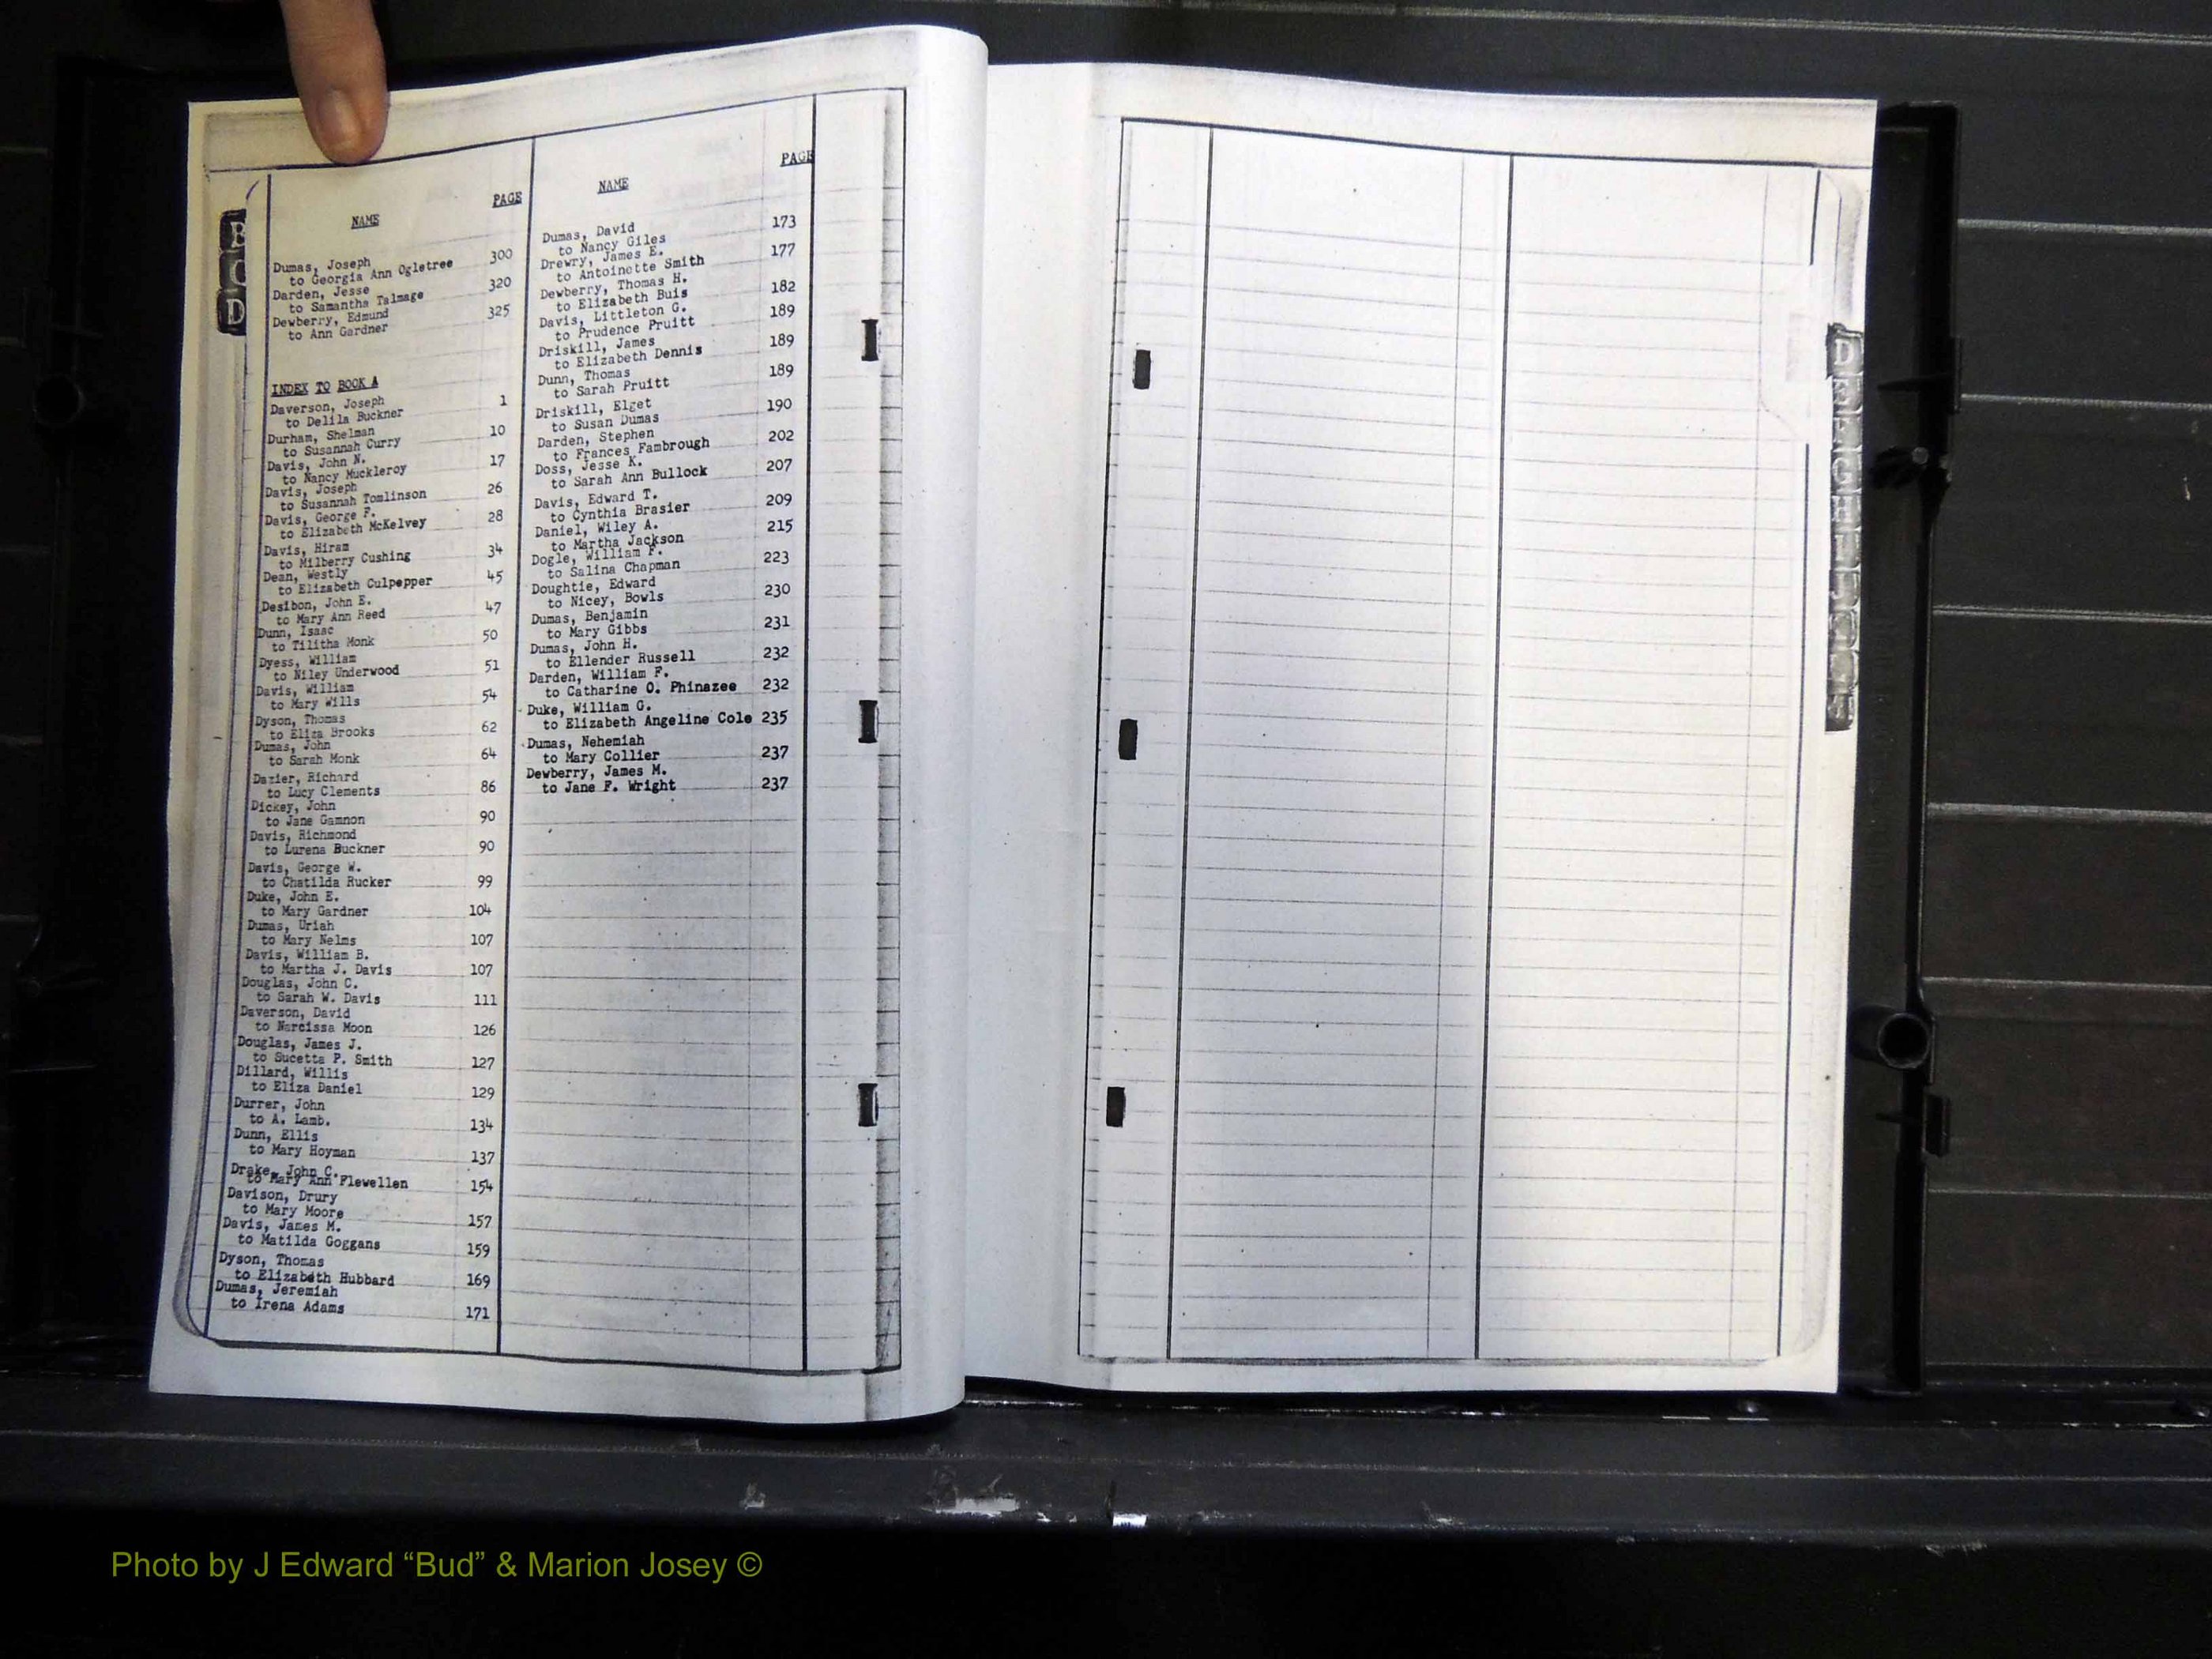 B
C
D
NAME PAGE
Dumas, Joseph
to Georgia Ann Ogletree 300
Darden, Jesse
to Samantha Talmage 320
Dewberry, Edmund
to Ann Gardner 325
INDEX TO BOOK A
Daverson, Joseph
to Delila Buckner 1
Durham, Shelman
to Susannah Curry 10
Davis, John N.
to Nancy Muckleroy 17
Davis, Joseph
to Susannah Tomlinson 26
Davis, George F.
to Elizabeth McKelvey 28
Davis, Hiram
to Milberry Cushing 34
Dean, Westly
to Elizabeth Culpepper 45
Desibon, John E.
to Mary Ann Reed 47
Dunn, Isaac
to Tilitha Monk 50
Dyess, William
to Niley Underwood 51
Davis, William
to Mary Wills 54
Dyson, Thomas
to Eliza Brooks 62
Dumas, John
to Sarah Monk 64
Dazier, Richard
to Lucy Clements 86
Dickey, John
to Jane Gamnon 90
Davis, Richmond
to Lurena Buckner 90
Davis, George W.
to Chatilda Rucker 99
Duke, John E.
to Mary Gardner 104
Dumas, Uriah
to Mary Nelms 107
Davis, William B.
to Martha J. Davis 107
Douglas, John C.
to Sarah W. Davis 111
Daverson, David
to Narcissa Moon 126
Douglas, James J.
to Sucetta P. Smith 127
Dillard, Willis
to Eliza Daniel 129
Durrer, John
to A. Lamb. 134
Dunn, Ellis
to Mary Hoyman 137
Drake, John C.
to Mary Ann Flewellen 154
Davison, Drury
to Mary Moore 157
Davis, James M.
to Matilda Goggans 159
Dyson, Thomas
to Elizabeth Hubbard 169
Dumas, Jeremiah
to Irena Adams 171
NAME PAGE
Dumas, David 173
to Nancy Giles
Drewry, James E. 177
to Antoinette Smith
Dewberry, Thomas H.
to Elizabeth Buis 182
Davis, Littleton G.
to Prudence Pruitt 189
Driskill, James
to Elizabeth Dennis 189
Dunn, Thomas
to Sarah Pruitt 189
Driskill, Elget
to Susan Dumas 190
Darden, Stephen
to Frances Fambrough 202
Doss, Jesse K.
to Sarah Ann Bullock 207
Davis, Edward T.
to Cynthia Brasier 209
Daniel, Wiley A.
to Martha Jackson 215
Dogle, William F.
to Salina Chapman 223
Doughtie, Edward
to Nicey, Bowls 230
Dumas, Benjamin
to Mary Gibbs 231
Dumas, John H.
to Ellender Russell 232
Darden, William F.
to Catharine O. Phinazee 232
Duke, William G.
to Elizabeth Angeline Cole 235
Dumas, Nehemiah
to Mary Collier 237
Dewberry, James M.
to Jane F. Wright 237
D
E
F
G
H
I
J
Photo by J Edward “Bud” & Marion Josey ©